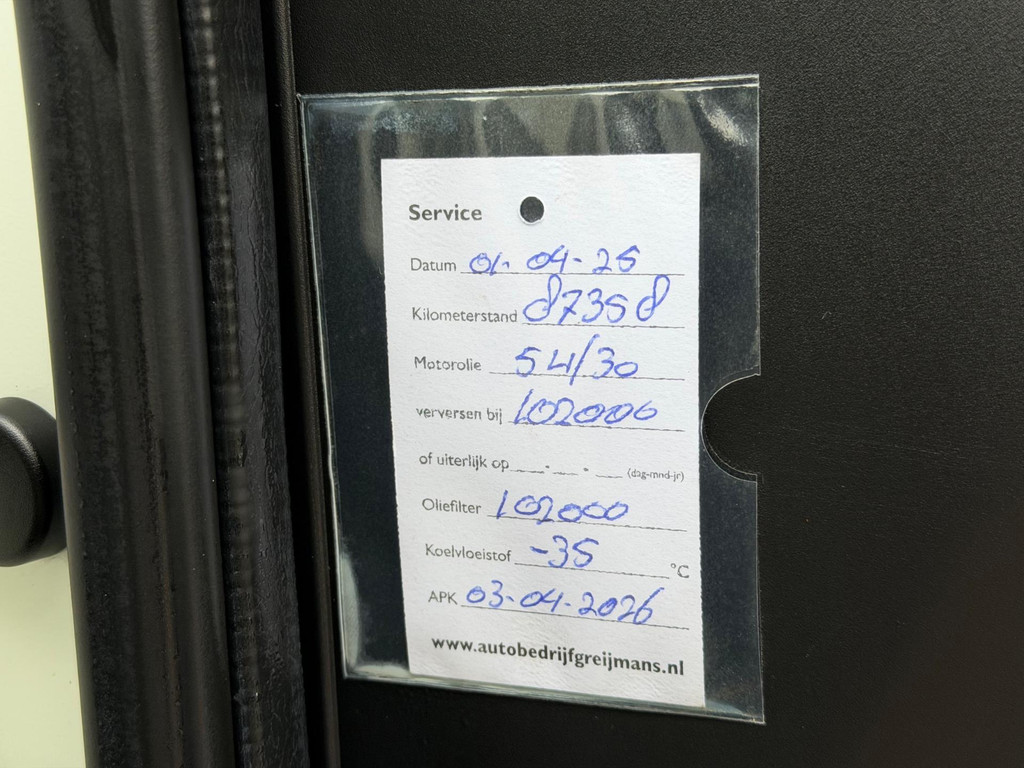 Service
Datum 01-04-25
Kilometerstand 87358
Motorolie 5W/30
verversen bij 102000
of uiterlijk op __-__-__ (dag-mnd-jr)
Oliefilter 102000
Koelvloeistof -35 °C
APK 03-04-2026
www.autobedrijfgreijmans.nl